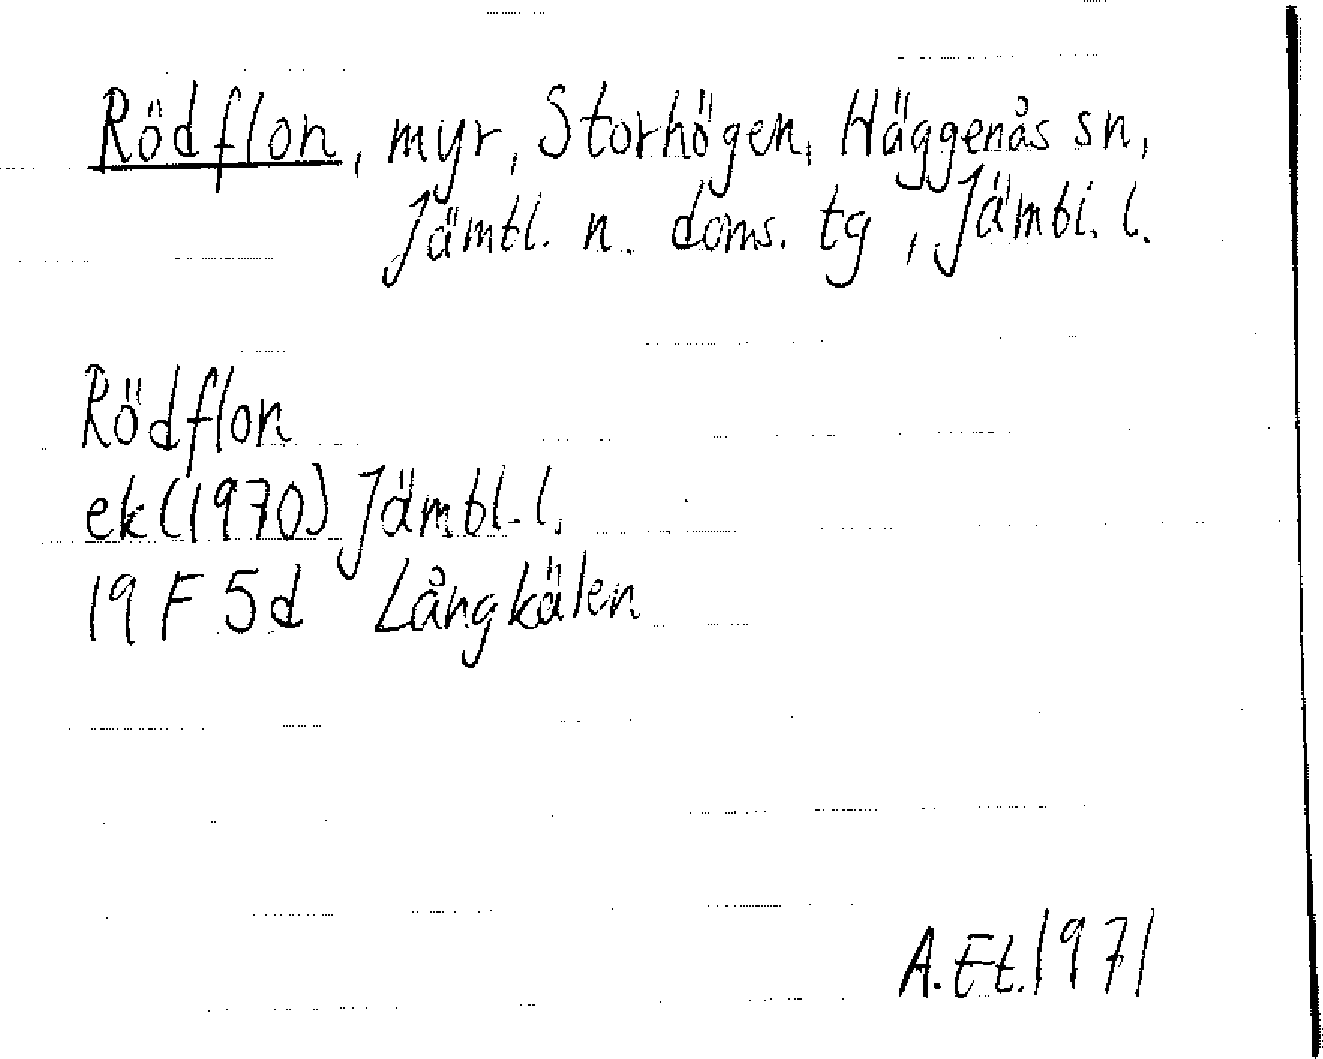 Rödflon, myr, Storhögen, Häggenås sn,
Jämtl. n. doms. tg, Jämtl. l.
Rödflon
ek (1970) Jämtl. l.
19 F 5d Långkälen
A. Et. 1971